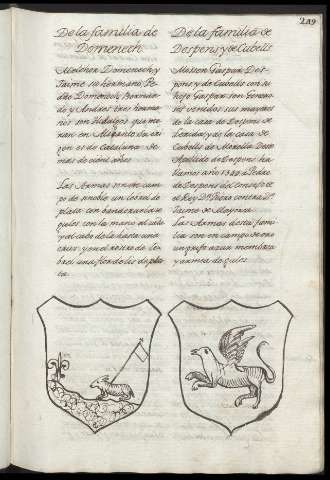 219
De la familia de
Domenech
Melchor Domenech y
Jaime su hermano, Pe-
dro Domenech,
y Andres tres herma-
nos son Hidalgos que mo-
ran en Alicante su ori-
gen es de Cataluña de
mas de cien años
Las Armas son en cam-
po de sinoble un losral de
plata con
gules con la mano al cuello
y al cabo de la hasta una
cruz, y en el rostro de le-
brel una flor de lis de pla-
ta.
De la familia de
Despens y de Cubells
Mossen Gaspar Des-
pens y de Cubells con su
hijo Gaspar son Genero-
sos venidos sus mayores
de la casa de Despens de
Lerida, y de la casa de
Cubells de Morella Deste
Apellido de Despens ha-
llamos año 1344 a Pedro
de Despens del Consejo de
el Rey Dn. Pedro contra Dn.
Jaime de Mayorca.
Las Armas desta fami-
lia son en campo de oro
un grifo azur membrado
y armado de gules.